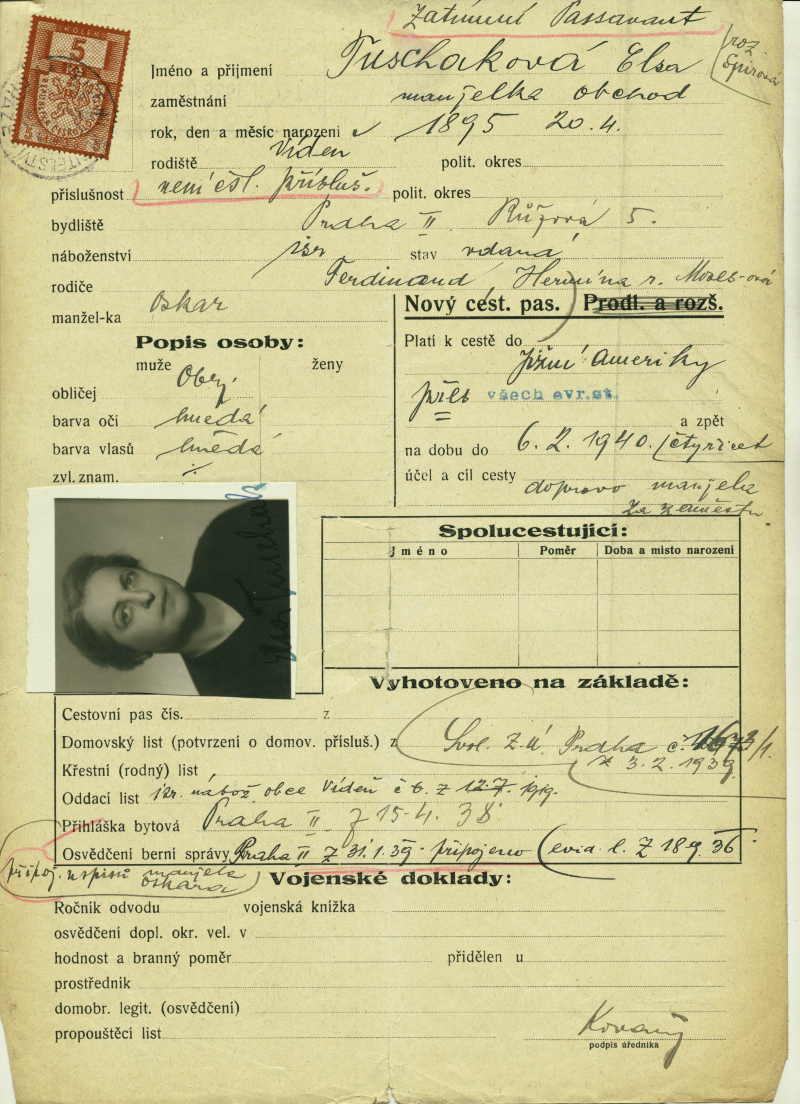 Zatímní Passavant
KOLEK
5
Jméno a příjmení Tuschaková Elsa
roz.
Spirová
zaměstnání manželka obchod
rok, den a měsíc narození 1895 20.4.
rodiště Vídeň polit. okres
příslušnost není čsl. přísluš. polit. okres
bydliště Praha II Růžová 5.
náboženství isr stav vdaná
rodiče Ferdinand, Hermína r. Moses-ová
manžel-ka Oskar
Nový cest. pas. Prodl. a rozš.
Popis osoby:
muže ženy
Platí k cestě do jižní Ameriky
obličej Obly
přes všech evr. st.
barva očí hnědá
a zpět
barva vlasů hnědá
na dobu do 6.2.1940. (čtyřicet
zvl. znam. ·/·
účel a cíl cesty doprovo manžela
za zaměstn.
Elsa Tuschak
Spolucestující:
Jméno Poměr Doba a místo narození
Vyhotoveno na základě:
Cestovní pas čís. z
Domovský list (potvrzení o domov. přísluš.) z Svol. Z.Ú. Praha č. /1.
z 3.2.1939
Křestní (rodný) list
Oddací list isr. nábož obce Vídeň č 6. z 12.7. 1919.
Přihláška bytová Praha II z 15.4.38
Osvědčení berní správy Praha II z 31.1.39 připojeno (evid. l. z 18.9.36.
připoj. u spisů manžela
Oskara
Vojenské doklady:
Ročník odvodu vojenská knížka
osvědčení dopl. okr. vel. v
hodnost a branný poměr přidělen u
prostředník
domobr. legit. (osvědčení)
propouštěcí list
podpis úředníka